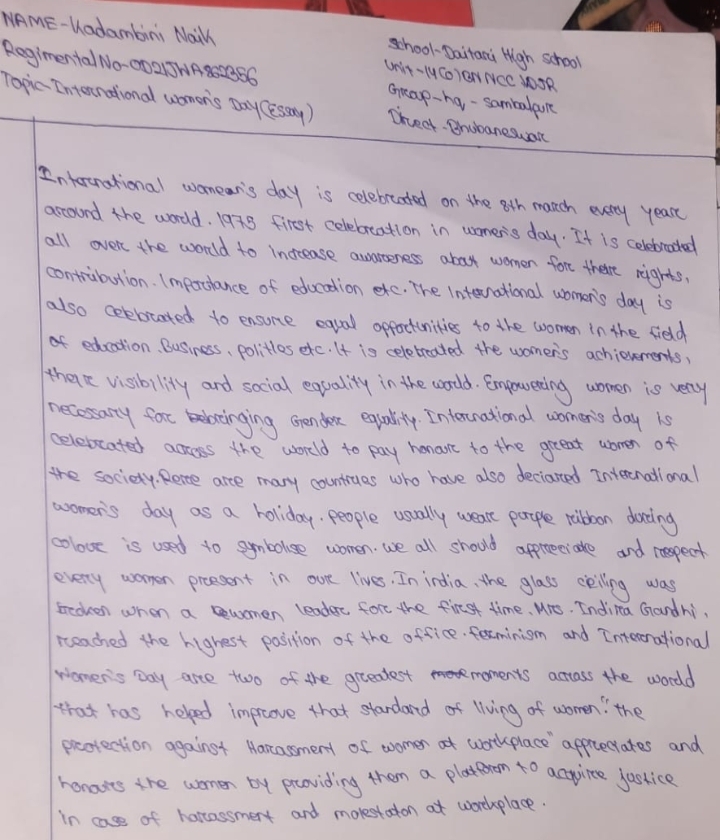 NAME-Kadambini Naik
Regimental No-OD21JHA862356
Topic-International women's Day(Essay)
School-Daitari High School
Unit-14(O)BN NCC JDJR
Group-hq - Sambalpur
Direct-Bhubaneswar
International womean's day is celebrated on the 8th march every year
around the world. 1975 first celebration in women's day. It is celebrated
all over the world to increase awareness about women for there rights,
contribution. Importance of education etc. The International women's day is
also celebrated to ensure equal opportunities to the women in the field
of education. Business, polities etc. It is celebrated the women's achievements,
their visibility and social equality in the world. Empowering women is very
necessary for bringing Gender equality. International women's day is
celebrated across the world to pay honour to the great women of
the society. Rere are many countries who have also declared International
women's day as a holiday. people usually wear purple ribbon during
colour is used to symbolise women. we all should appreciate and respect
every women present in our lives. In india, the glass ceiling was
broken when a women leader for the first time, Mrs. Indira Gandhi,
reached the highest position of the office. ferminism and International
Women's Day are two of the greatest moments across the world
that has helped improve that standard of living of women. "the
protection against Harassment of women at workplace" appreciates and
honours the women by providing them a platform to acquire justice
in case of harassment and molestaton at workplace.